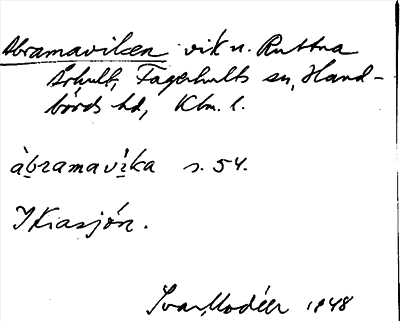 Abramaviken vik u. Ruttna
Arhult, Fagerhults sn, Hand-
börds hd, Klm. l.
àbramavìka s. 54.
I Kiasjön.
Ivar Modéer 1948